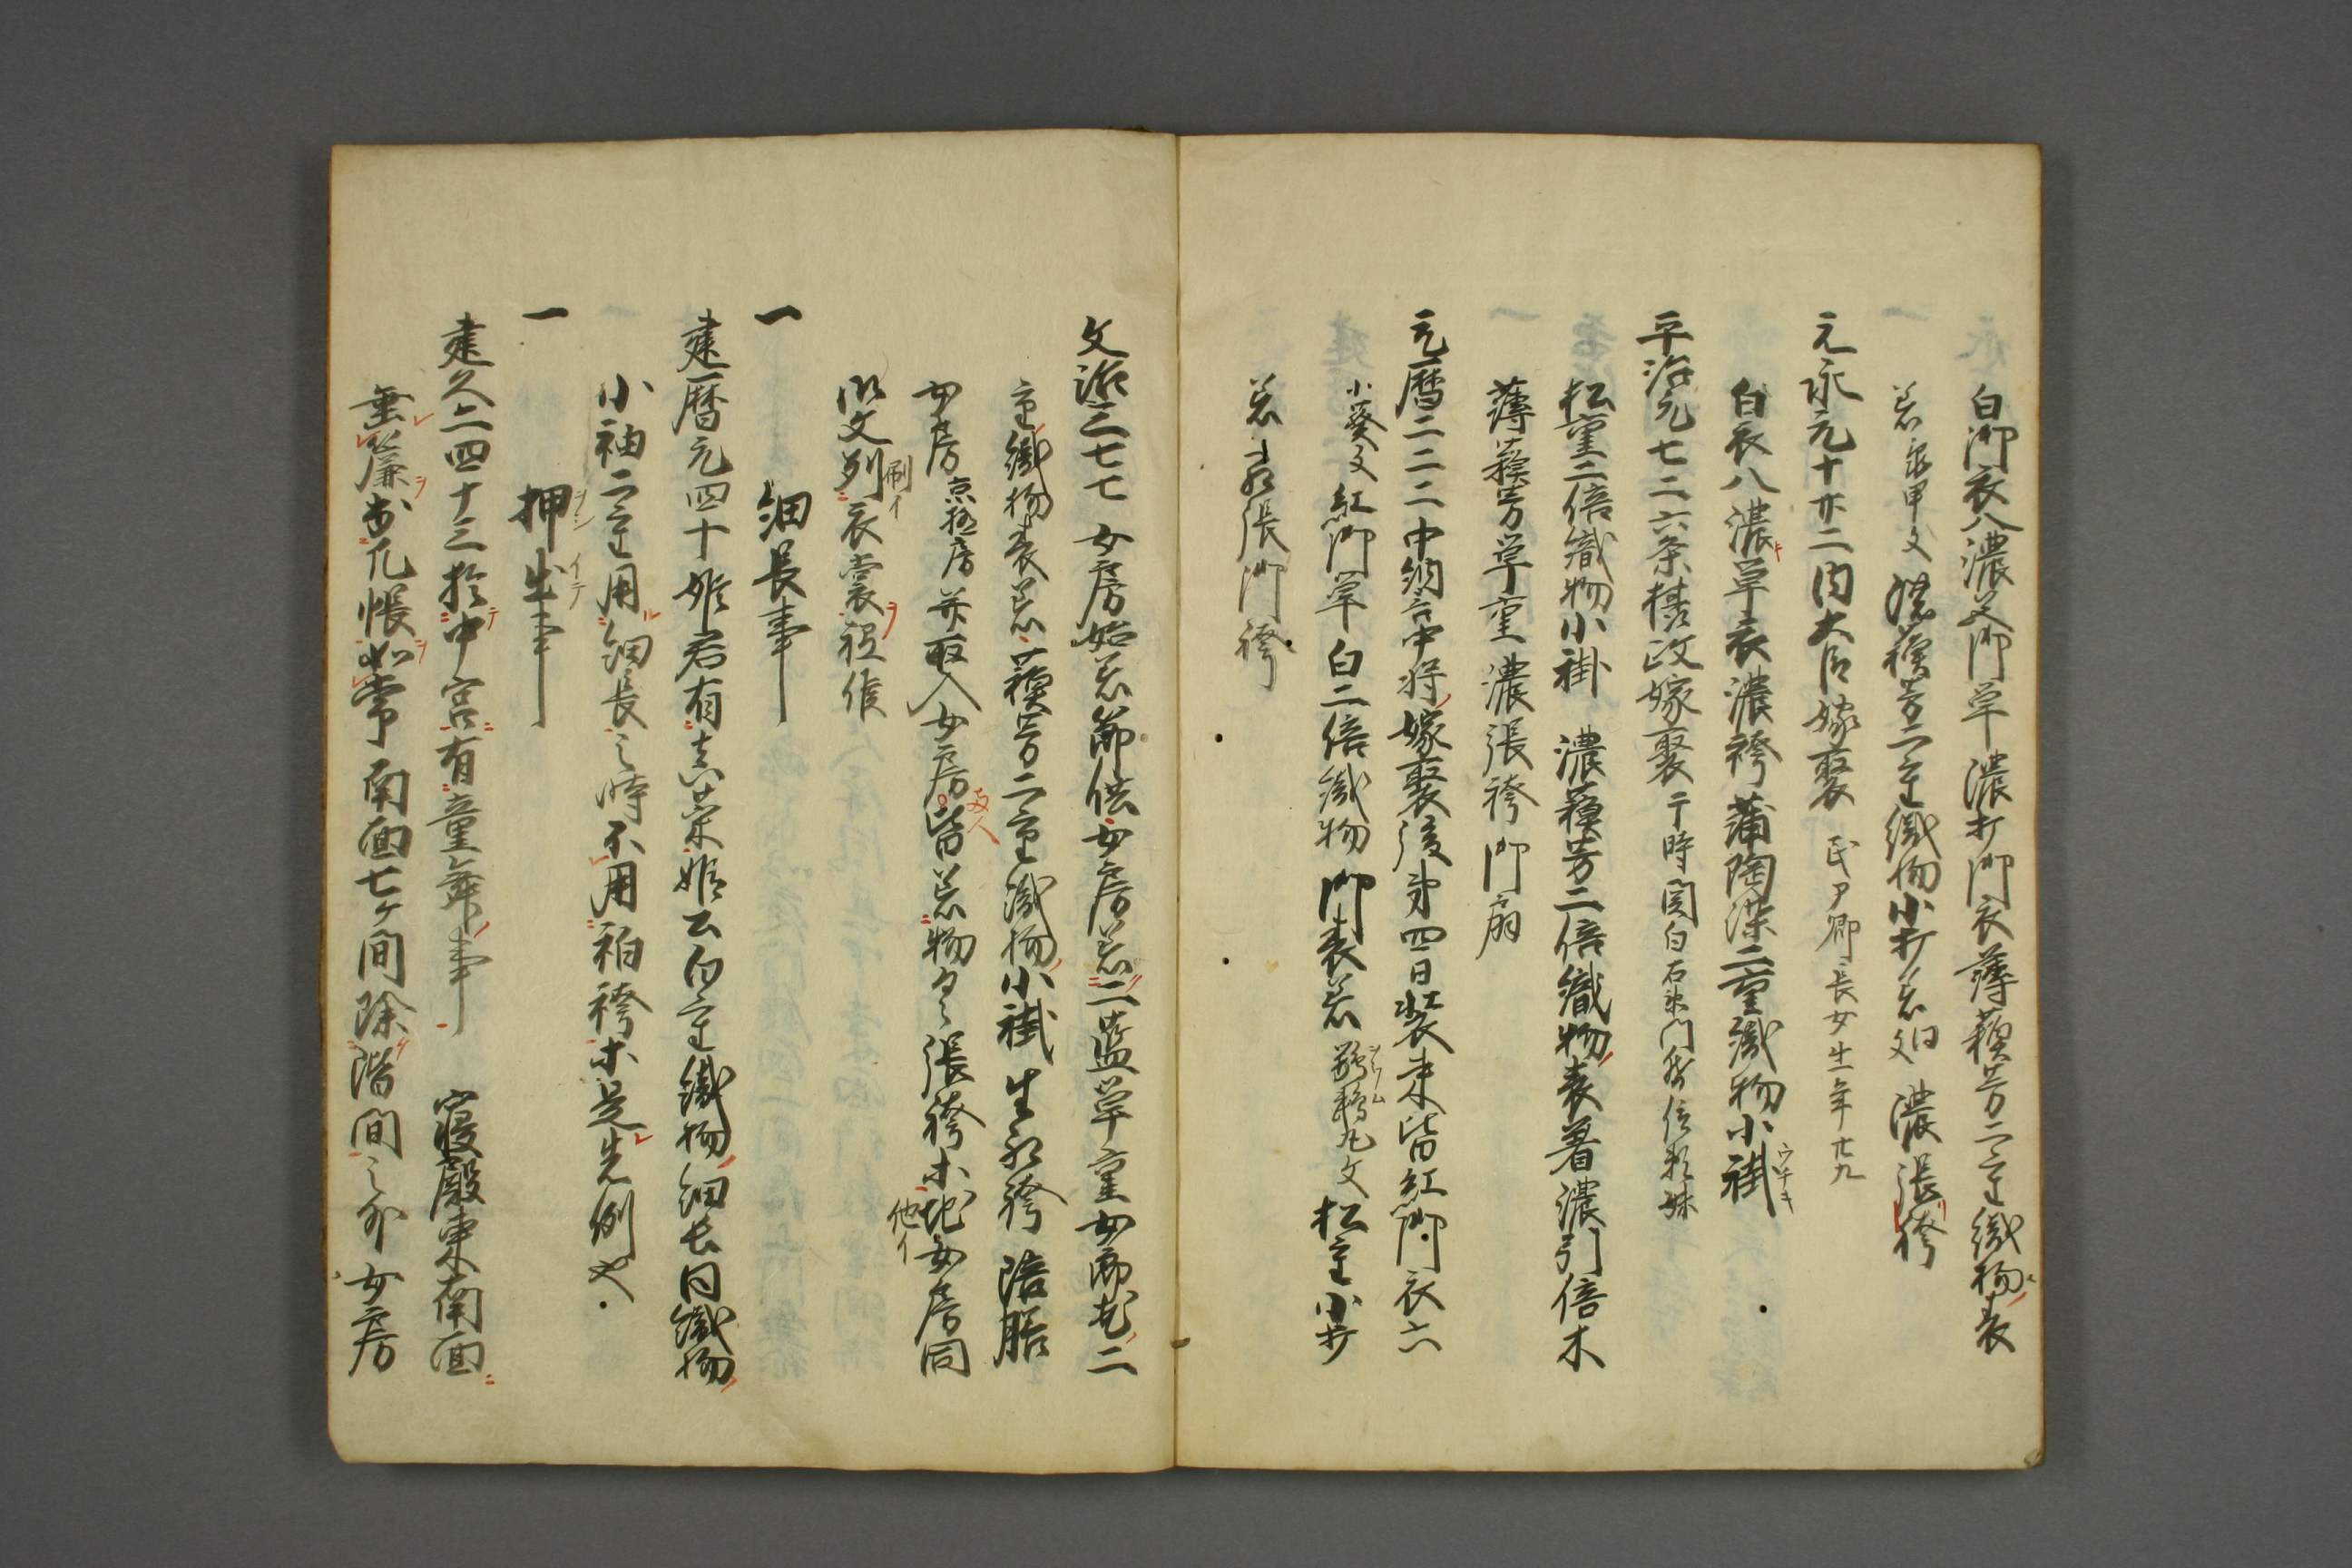 白御衣八濃文御単濃打御衣薄蘓芳二重織物表
着亀甲文 濃蘓芳二重織物小打着同文 濃張袴
元永元十廿二内大臣嫁娶 民ア卿長女生年廿九
白衣八濃単表濃袴蒲陶染二重織物小褂
平治元七二六条摂政嫁娶 于時関白右衛門督信頼妹
松重二倍織物小褂 濃蘓芳二倍織物表着濃引倍木
薄蘓芳単重 濃張袴 御扇
元暦二二二中納言中将嫁娶後第四日装束皆紅御衣六
小葵文 紅御単 白二倍織物御表着 鸚鵡丸文 松重小打
着 生張御袴
文治三七七 女房始着節供女房着二藍単重女郎花二
重織物表着蘓芳二重織物小褂 生袴 陪膳
女房 京極房 并取入女房皆着物具張袴木地女房同
以文列衣裳祗候
一 細長事
建暦元四十姫君有真菜始云白二重織物細長同織物
小袖二重用細長之時不用袙袴ホ是先例也
一 押出事
建久二四十三於中宮有童舞事 寝殿東南面
垂簾出几帳如常南面七ヶ間除階間之外女房